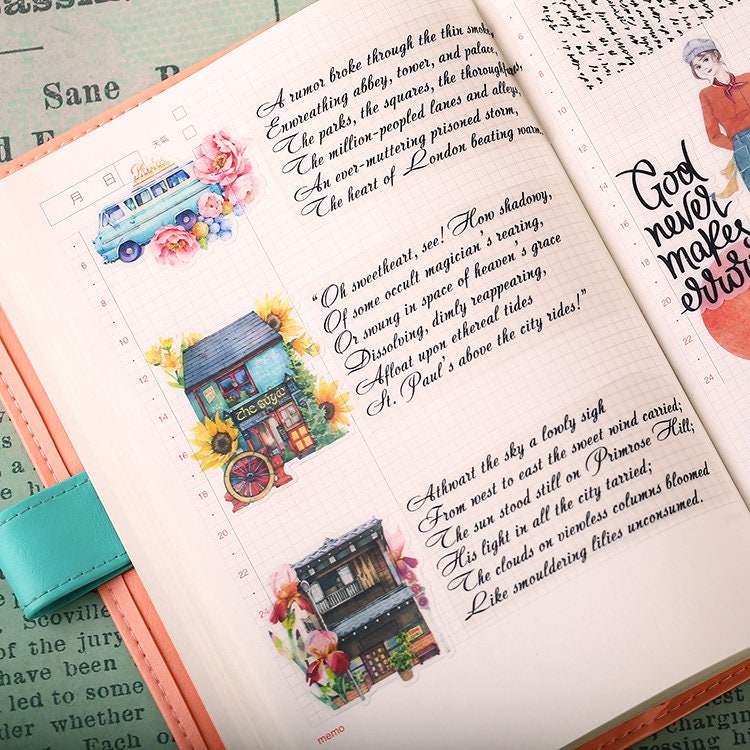 Sane
月 日
天氣
A rumor broke through the thin smoke,
Enwreathing abbey, tower, and palace,
The parks, the squares, the thoroughfares,
The million-peopled lanes and alleys,
An ever-muttering prisoned storm,
The heart of London beating warm.
"Oh sweetheart, see! How shadowy,
Of some occult magician's rearing,
Or swung in space of heaven's grace
Dissolving, dimly reappearing,
Afloat upon ethereal tides
St. Paul's above the city rides!"
the sugar
Athwart the sky a lowly sigh
From west to east the sweet wind carried;
The sun stood still on Primrose Hill;
His light in all the city tarried;
The clouds on viewless columns bloomed
Like smouldering lilies unconsumed.
6
8
10
12
14
16
18
20
22
24
memo
6
8
10
12
14
16
18
20
22
24
God
never
makes
errors
Scoville
of the jury
have been
led to some
der whether
Each
charging